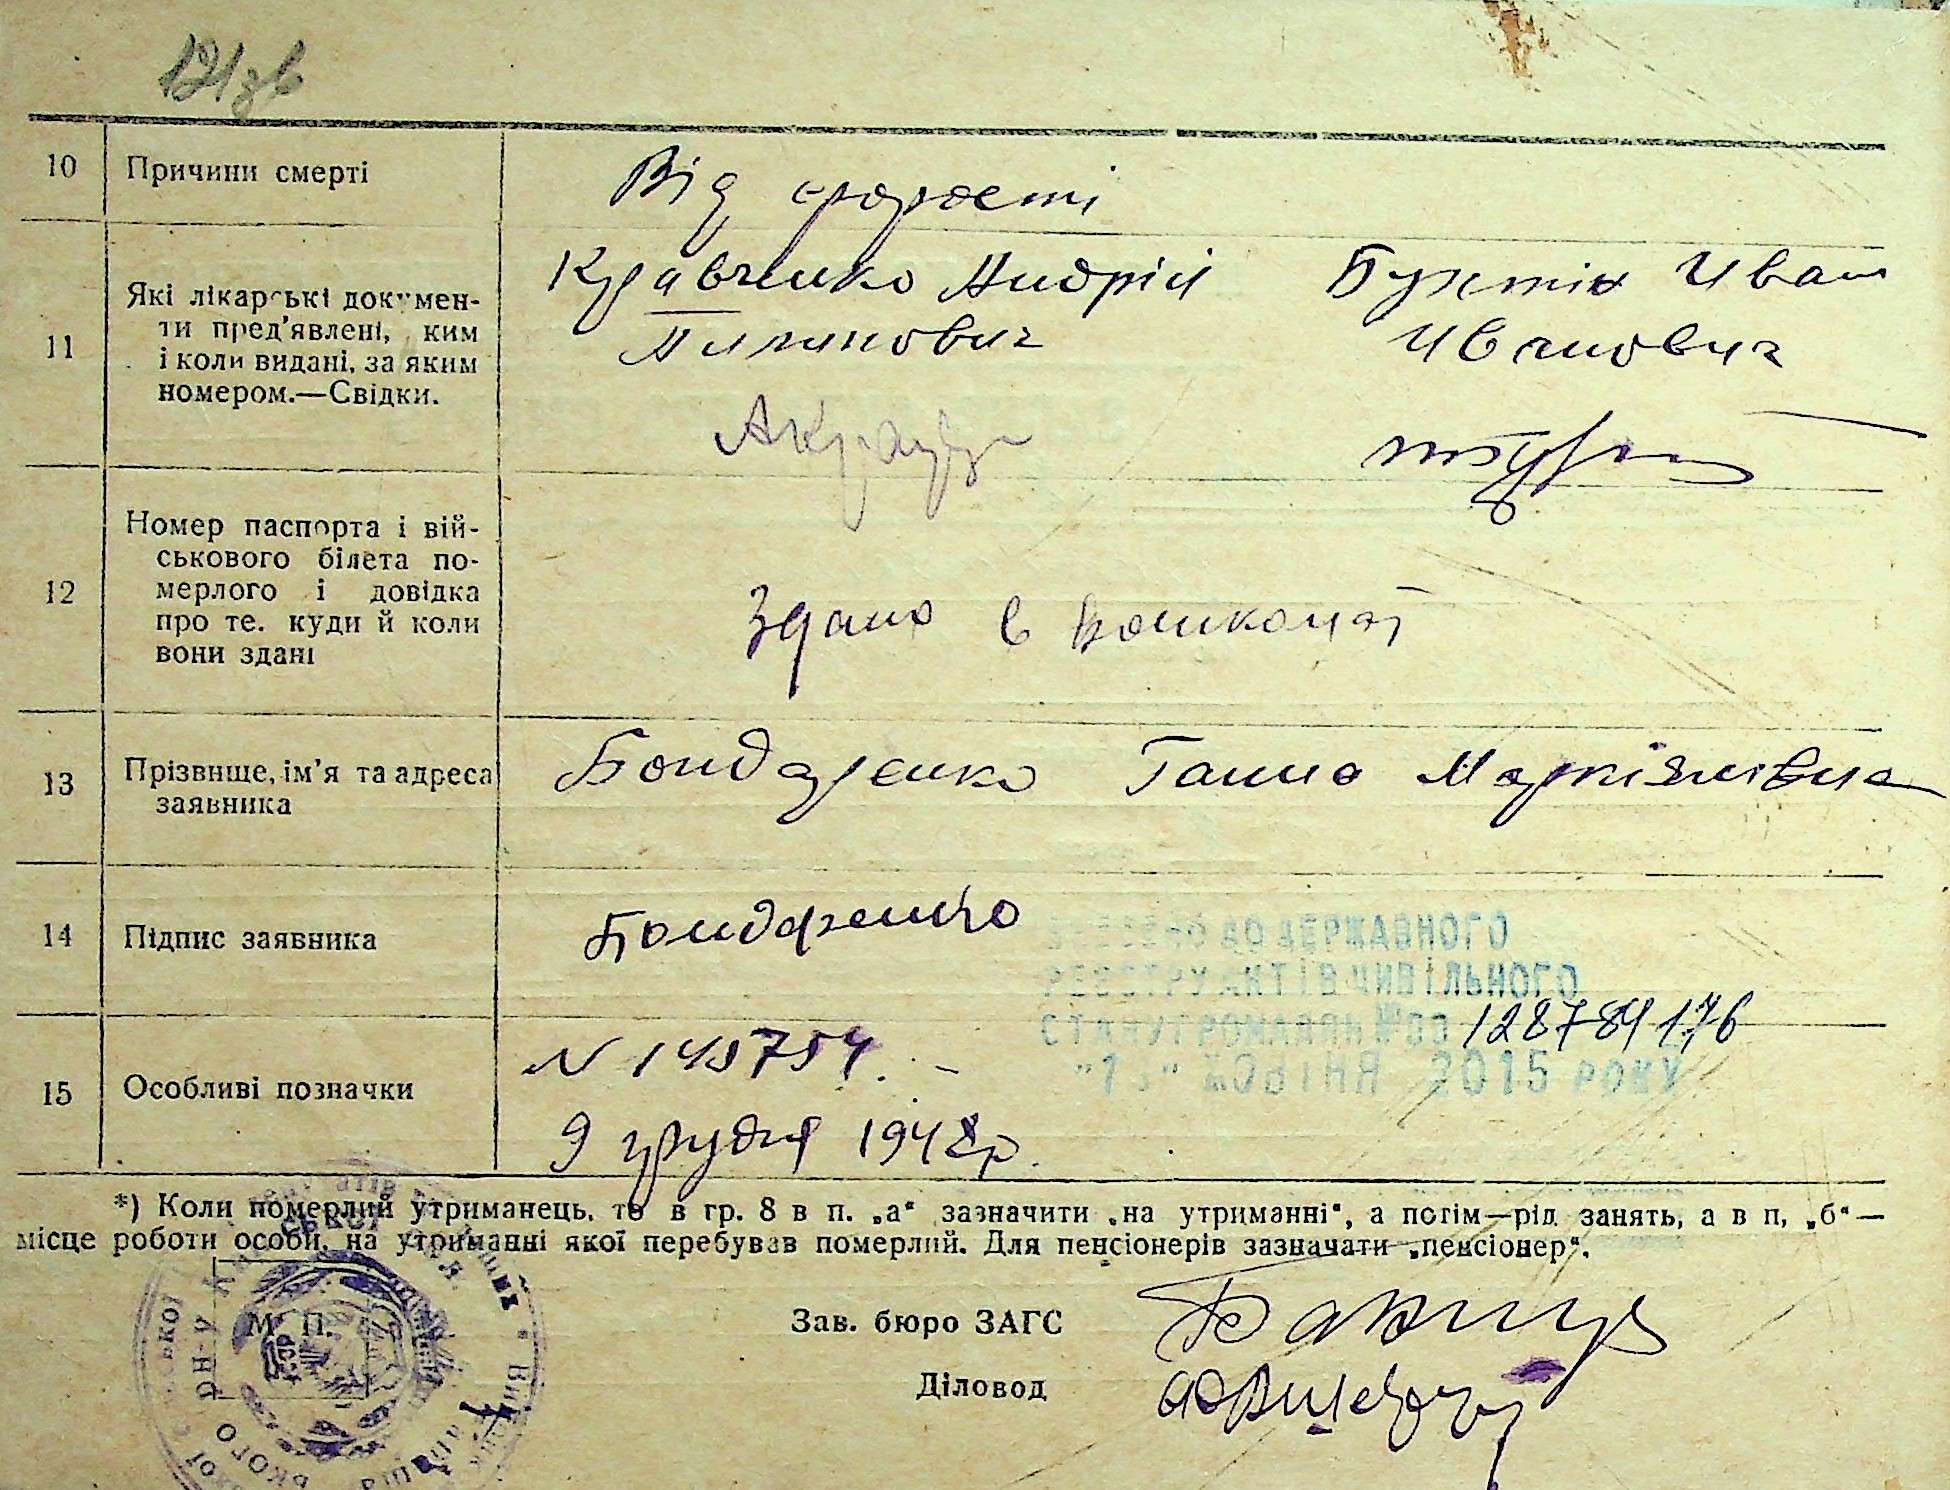 121зв
10 Причини смерті Від старости
11 Які лікарські докумен-
ти пред'явлені, ким
і коли видані, за яким
номером.—Свідки.
Кравченко Андрій Іван
Иванович
12 Номер паспорта і вій-
ськового білета по-
мерлого і довідка
про те. куди й коли
вони здані
Здано в
13 Прізвище, ім'я та адреса
заявника
Бондаренко Ганна Маркіянівна
14 Підпис заявника Бондаренко
ДО ДЕРЖАВНОГО
РЕЄСТРУ АКТІВ ЦИВІЛЬНОГО
СТАНУ ГРОМАДЯН № 00 128784176
ЖОВТНЯ 2015 РОКУ
15 Особливі позначки
9 грудня 1948р.
*) Коли померлий утриманець, то в гр. 8 в п. „а“ зазначити „на утриманні“, а потім—рід занять, а в п, „б“—
місце роботи особи, на утриманні якої перебував померлий. Для пенсіонерів зазначати „пенсіонер“.
М. П.
Зав. бюро ЗАГС
Діловод